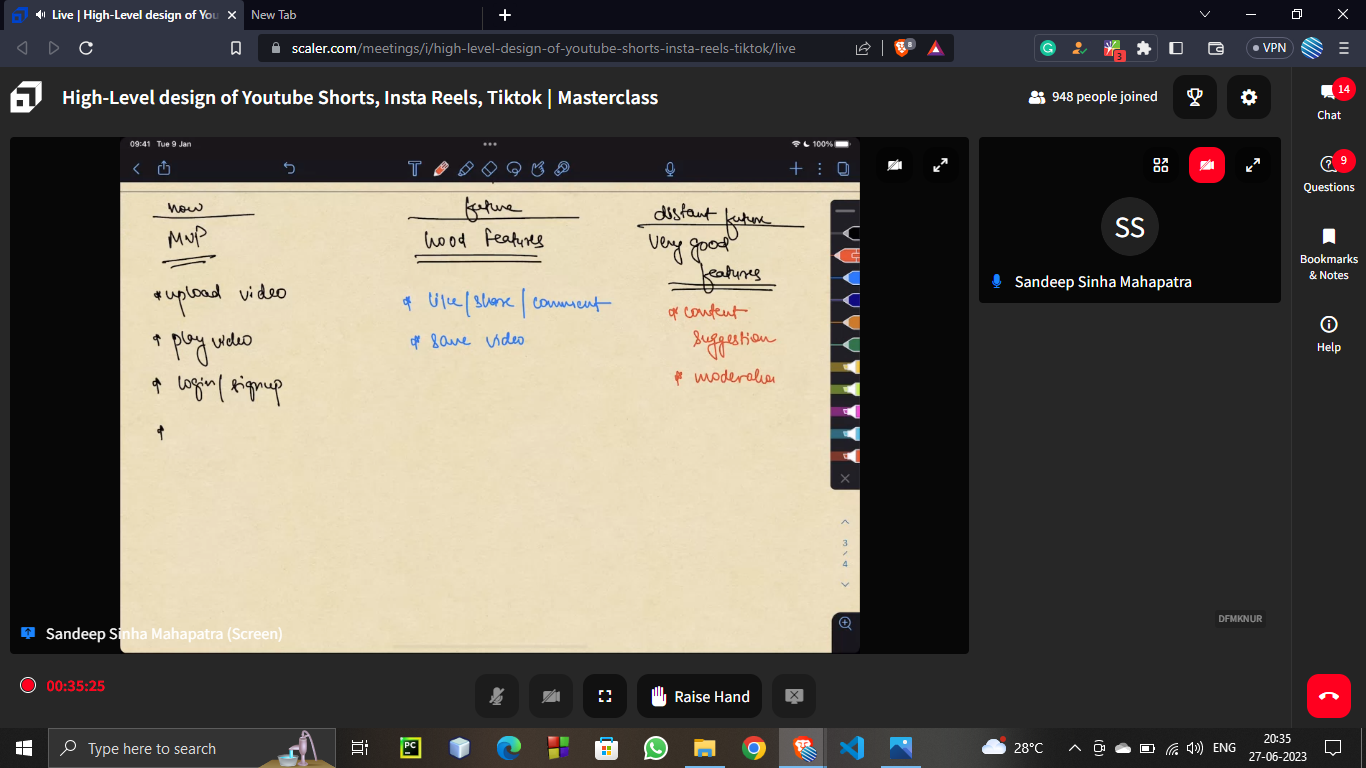 Live | High-Level design of You
New Tab
scaler.com/meetings/i/high-level-design-of-youtube-shorts-insta-reels-tiktok/live
8
3
VPN
High-Level design of Youtube Shorts, Insta Reels, Tiktok | Masterclass
948 people joined
14
Chat
9
Questions
Bookmarks
& Notes
Help
09:41 Tue 9 Jan
100%
now
future
distant future
MVP
Good Features
Very good
features
* upload video
* play video
* login/signup
*
* like/share/comment
* save video
* content
suggestion
* moderation
3
/
4
Sandeep Sinha Mahapatra (Screen)
SS
Sandeep Sinha Mahapatra
DFMKNUR
00:35:25
Raise Hand
Type here to search
PC
28°C
ENG
20:35
27-06-2023